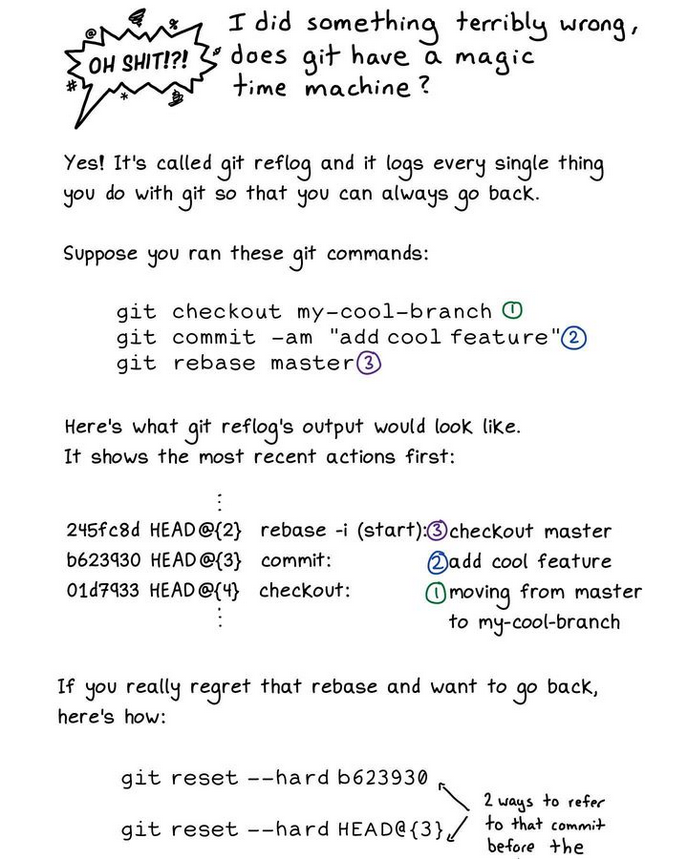 OH SHIT!?!
I did something terribly wrong,
does git have a magic
time machine?
Yes! It's called git reflog and it logs every single thing
you do with git so that you can always go back.
Suppose you ran these git commands:
git checkout my-cool-branch ①
git commit -am "add cool feature" ②
git rebase master ③
Here's what git reflog's output would look like.
It shows the most recent actions first:
⋮
245fc8d HEAD@{2} rebase -i (start): ③ checkout master
b623930 HEAD@{3} commit: ② add cool feature
01d7933 HEAD@{4} checkout: ① moving from master
to my-cool-branch
⋮
If you really regret that rebase and want to go back,
here's how:
git reset --hard b623930
git reset --hard HEAD@{3}
2 ways to refer
to that commit
before the